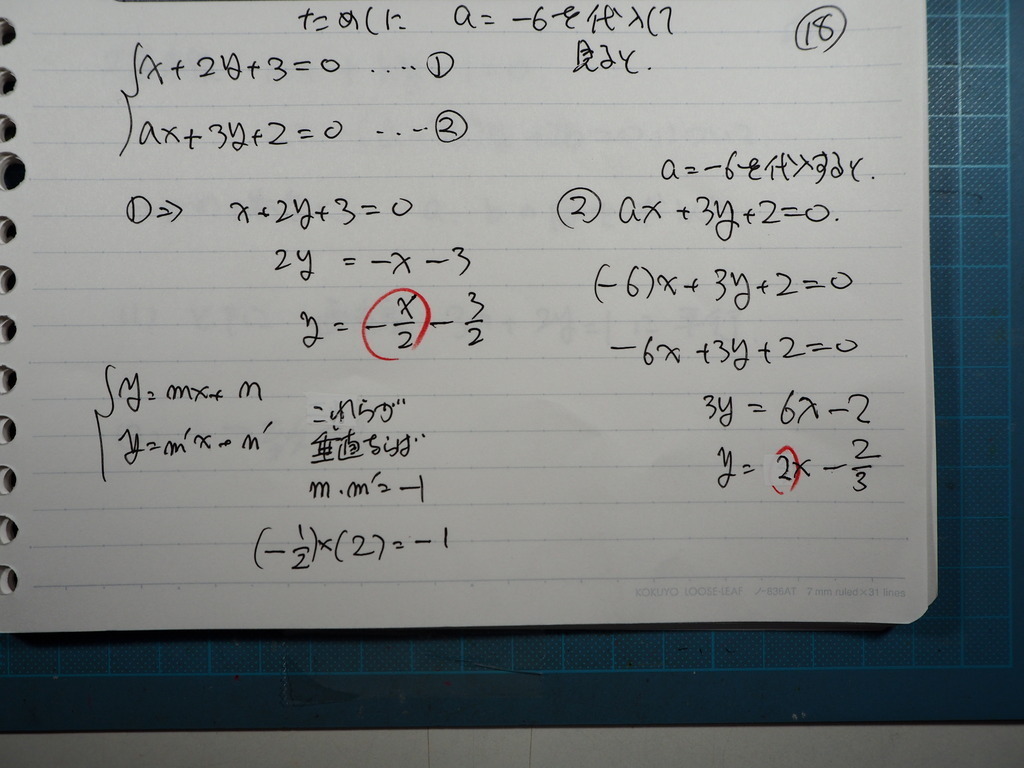 ためしに a = -6を代入して ⑱
見ると.
x + 2y + 3 = 0 ‥‥ ①
ax + 3y + 2 = 0 ‥‥ ②
① ⇒ x + 2y + 3 = 0
2y = -x - 3
y = -x/2 - 3/2
y = mx + n
y = m'x + n'
これらが
垂直ならば
m・m' = -1
(-1/2)×(2) = -1
a = -6を代入すると.
② ax + 3y + 2 = 0.
(-6)x + 3y + 2 = 0
-6x + 3y + 2 = 0
3y = 6x - 2
y = 2x - 2/3
KOKUYO LOOSE-LEAF ノ-836AT 7 mm ruled×31 lines